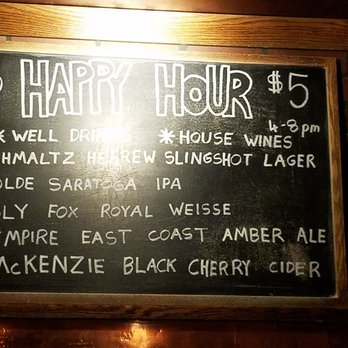 HAPPY HOUR $5
4-8pm
* WELL DRINKS * HOUSE WINES
HMALTZ HEBREW SLINGSHOT LAGER
OLDE SARATOGA IPA
LY FOX ROYAL WEISSE
EMPIRE EAST COAST AMBER ALE
McKENZIE BLACK CHERRY CIDER